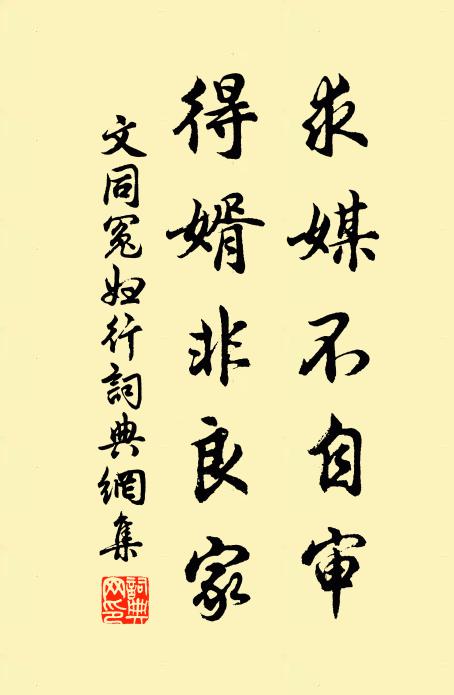 求媒不自审
得婿非良家
文同冤妇行詞典網集
詞典
网印